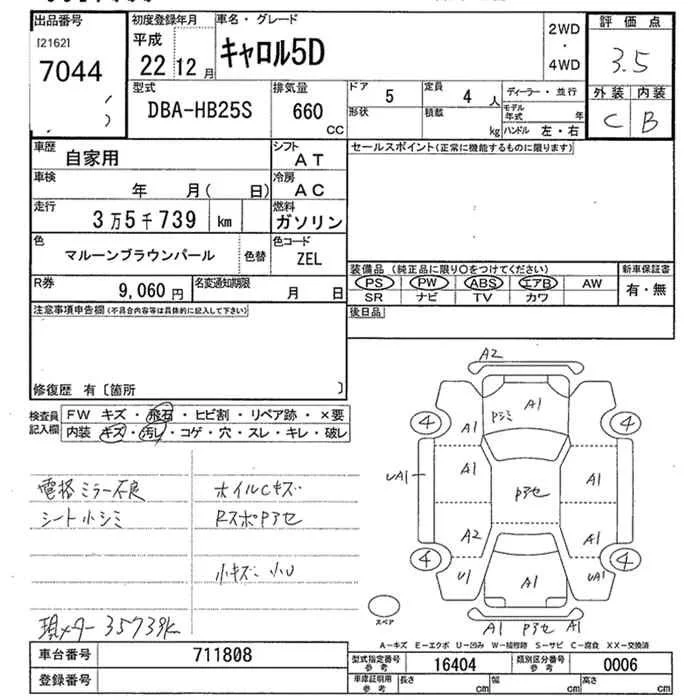 出品番号
[2162]
7044
初度登録年月
平成
22 12月
車名・グレード
キャロル5D
2WD
・
4WD
評価点
3.5
型式
DBA-HB25S
排気量
660
CC
ドア
5
定員
4 人
形状
積載
kg
ディーラー・並行
モデル年式 年
ハンドル 左・右
外装 内装
C B
車歴
自家用
シフト
AT
セールスポイント(正常に機能するものに限ります)
車検
年 月( 日)
冷房
AC
走行
3万5千739 km
燃料
ガソリン
色
マルーンブラウンパール
色替
色コード
ZEL
装備品 (純正品に限り○をつけてください)
新車保証書
PS PW ABS エアB AW
有・無
SR ナビ TV カワ
R券
9,060円
名変通知期限
月 日
注意事項申告欄(不具合内容等は具体的に記入して下さい)
後日品
修復歴 有〔箇所 〕
検査員記入欄
FW キズ・飛石・ヒビ割・リペア跡・×要
内装 キズ・汚レ・コゲ・穴・スレ・キレ・破レ
電格ミラー不良 ホイルCキズ
シート小シミ RスポPアセ
小キズ・小U
現メター35739k
A2
A1
Pシミ
4
4
A1
A1
UA1
A1
Pアセ
A1
A2
A1
4
4
U1
A1
UA1
スペア
A1 Pアセ A1
A−キズ E−エクボ U−凹み W−補修跡 S−サビ C−腐食 XX−交換済
車台番号
711808
型式指定番号
参考
16404
類別区分番号
参考
0006
登録番号
車庫証明用
参考
長さ
cm
幅
cm
高さ
cm